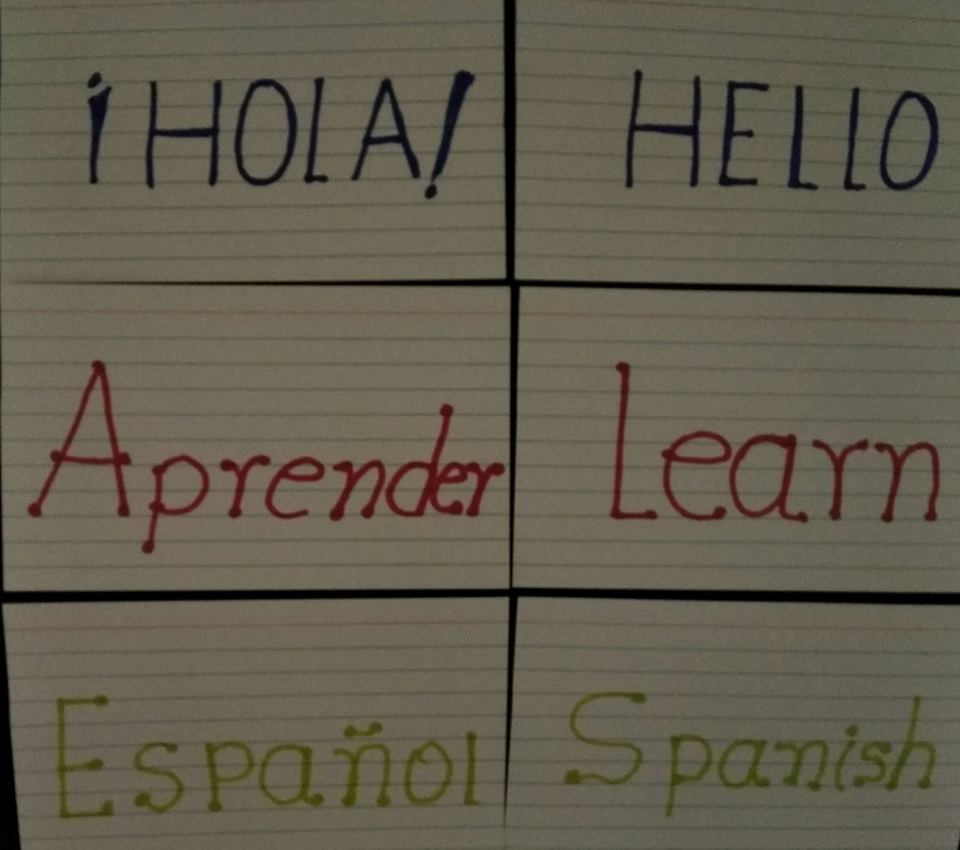 ¡HOLA! HELLO
Aprender Learn
Español Spanish